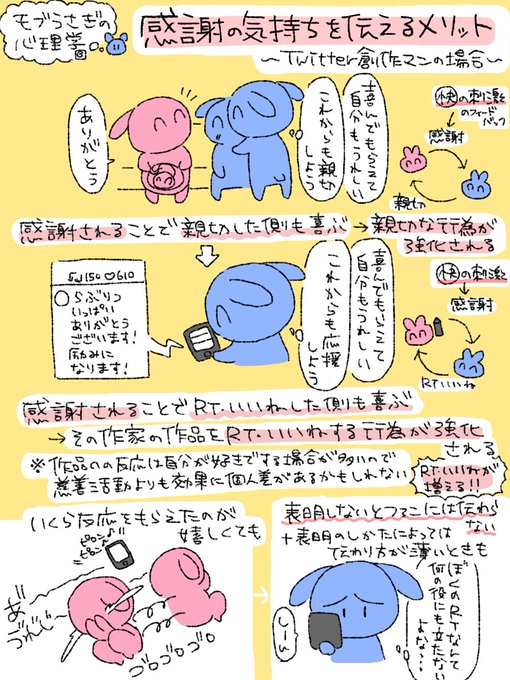 モブうさぎの
心理学
感謝の気持ちを伝えるメリット
～Twitter創作マンの場合～
ありがとう
喜んでもらえて
自分もうれしい
これからも親切
しよう
快の刺激
のフィード
バック
感謝
親切
感謝されることで親切した側も喜ぶ→親切な行為が
強化される
150 ♡610
らぶりつ
いっぱい
ありがとう
ございます!
励みに
なります!
喜んでもらえて
自分もうれしい
これからも応援
しよう
快の刺激
感謝
RT・いいね
感謝されることでRT・いいねした側も喜ぶ
→その作家の作品をRT・いいねする行為が強化
される
※作品のの反応は自分が好きでする場合が多いので
慈善活動よりも効果に個人差があるかもしれない
RT・いいねが
増える!!
いくら反応をもらえたのが
嬉しくても
ピロン♪
ピロン
あ゛
づれじ
ゴロゴロゴロ
表明しないとフォロワーには伝わら
ない
+表明のしかたによっては
伝わり方が薄いときも
ぼくのRTなんて
何の役にも立たない
よな…
しーん